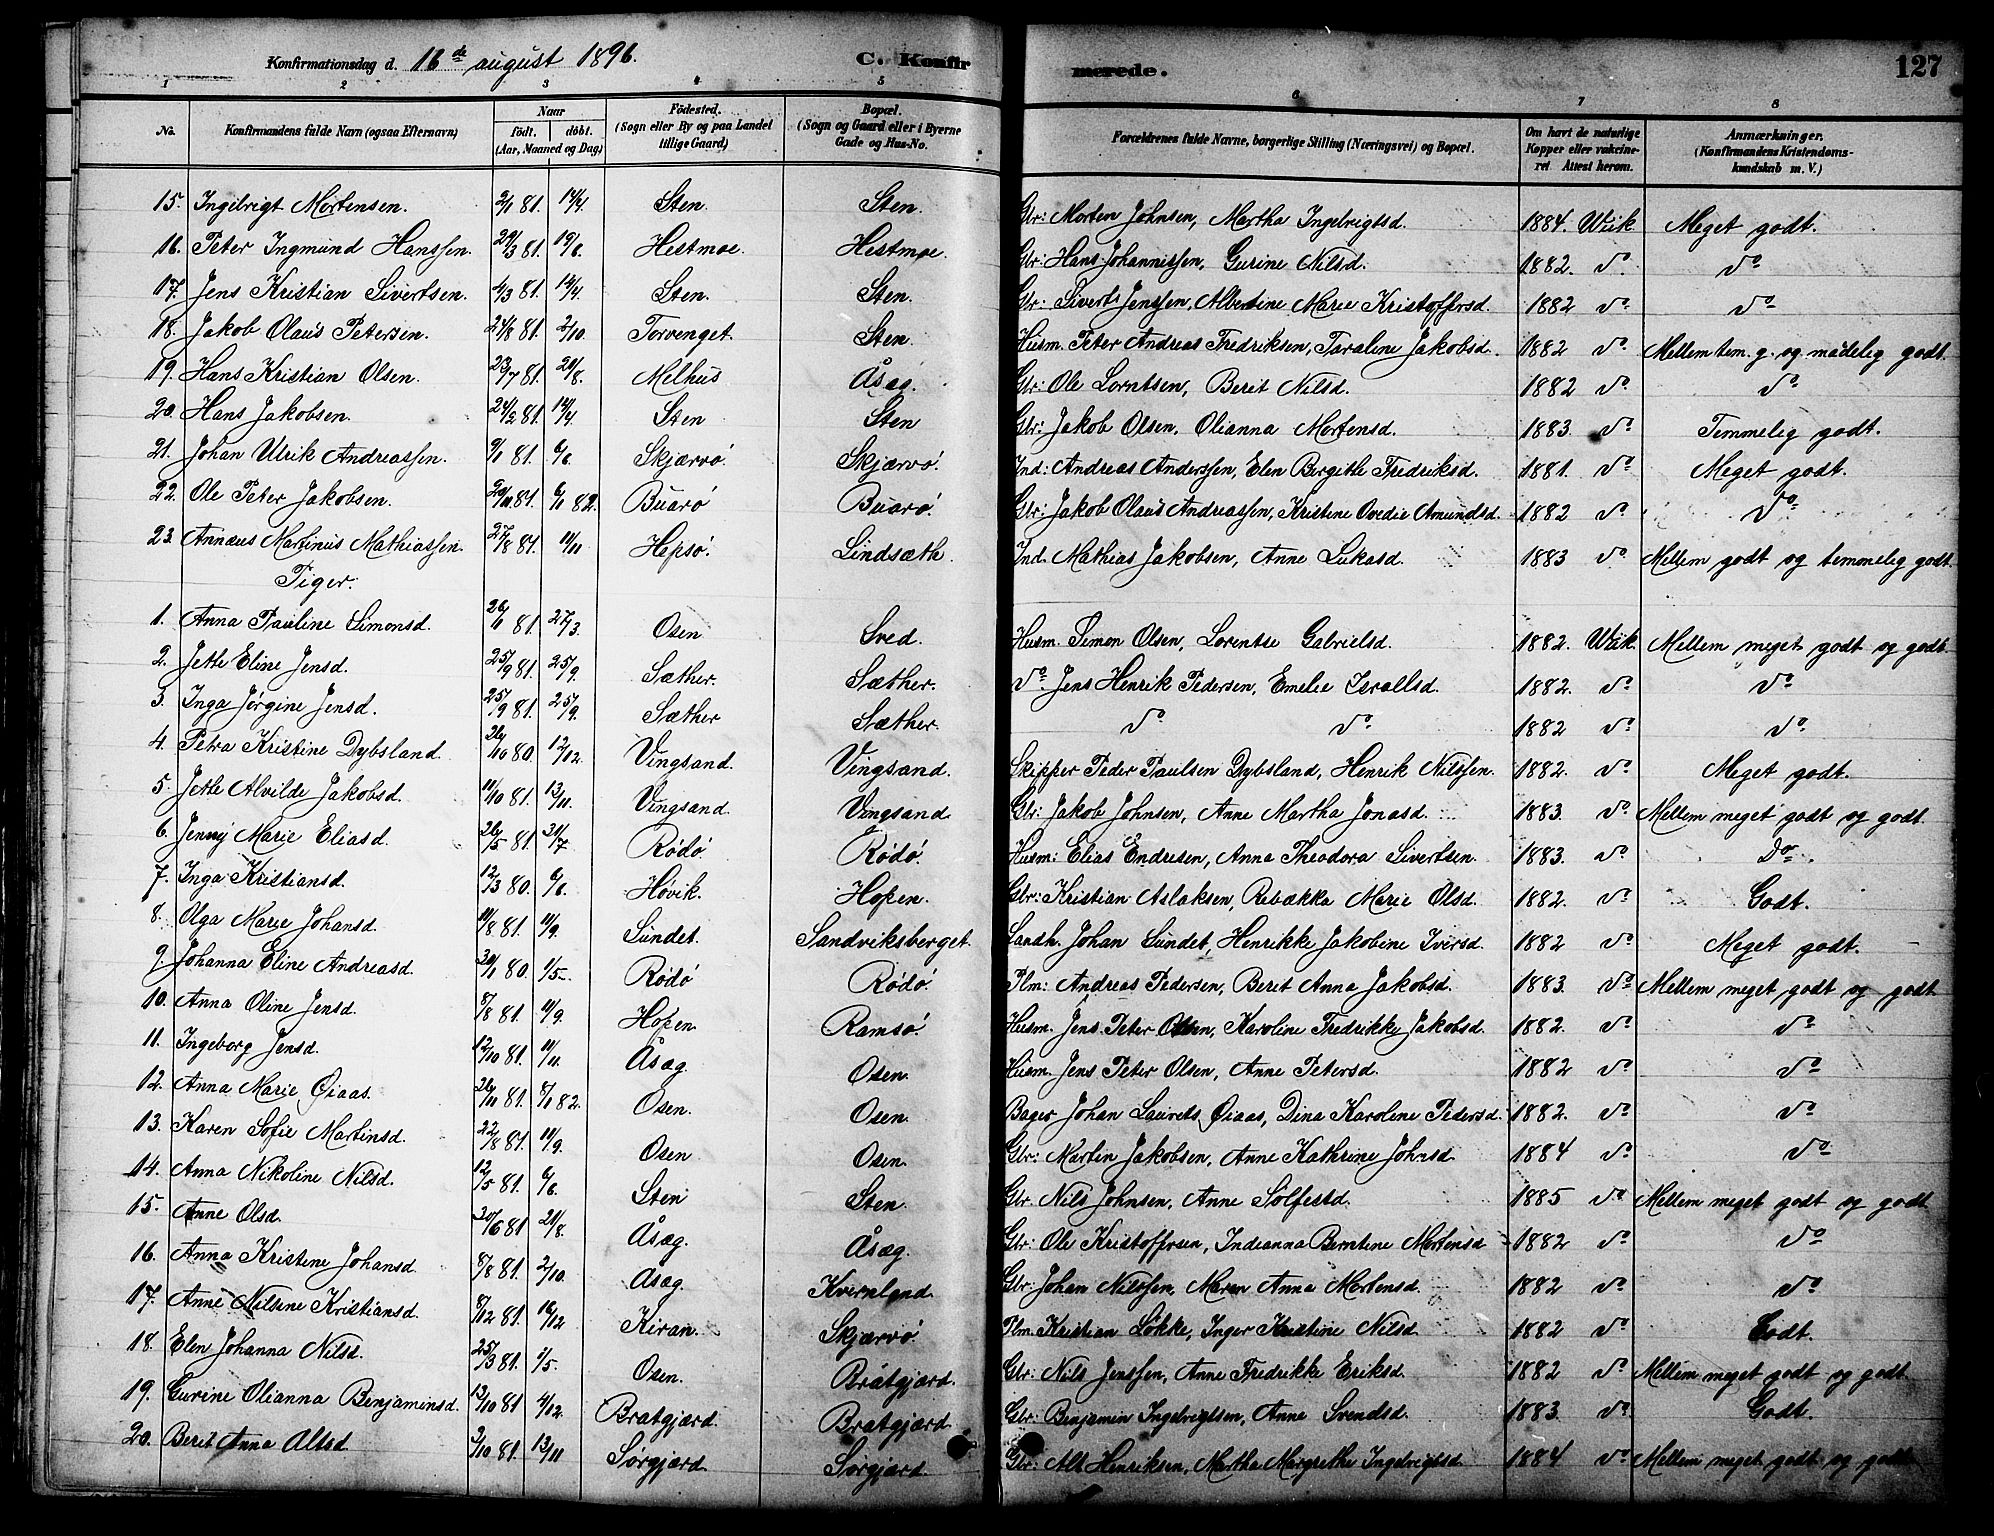 Konfirmationsdag d. 16de august 1896. C. Konfir merede. 127
1 2 3 4 5 6 7 8
No. Konfirmandens fulde Navn (ogsaa Efternavn) Naar født. døbt. (Aar, Maaned og Dag) Fødested. (Sogn eller By og paa Landet tillige Gaard) Bopæl. (Sogn og Gaard eller i Byerne Gade og Hus-No. Forældrenes fulde Navne, borgerlige Stilling (Næringsvei) og Bopæl. Om havt de naturlige Kopper eller vaccineret. Attest herom. Anmærkninger. (Konfirmandens Kristendomskundskab m. V.)
15. Ingebrigt Mortensen. 2/1 81. 14/4. Sten. Sten. Gbr: Morten Johnsen, Martha Ingebrigtsd. 1884. Wiik. Meget godt.
16. Peter Ingmund Hanssen. 29/3 81. 19/6. Hestmoe. Hestmoe. Gbr: Hans Johannissen, Gurine Nilsd. 1882. do do
17. Jens Kristian Sivertsen. 4/3 81. 14/4. Sten. Sten. Gbr: Sivert Jenssen, Albertine Marie Kristoffersd. 1882 do do
18. Jakob Olaus Petersen. 24/8 81. 2/10. Torvenget. Sten. Husm. Peter Andreas Fredriksen, Taraline Jakobsd. 1882 do Mellem tem. g. og mådelig godt.
19. Hans Kristian Olsen. 23/7 81. 21/8. Melhus Åsæg. Gbr: Ole Lorntsen, Berit Nilsd. 1882 do do
20. Hans Jakobsen. 24/2 81. 14/4. Sten Sten Gbr: Jakob Olsen, Olianna Mortensd. 1883. do Temmelig godt.
21. Johan Ulrik Andreassen. 9/1 81. 6/6. Skjærvø Skjærvø. Ind: Andreas Anderssen, Elen Bergithe Fredriksd. 1881. do Meget godt.
22. Ole Peter Jakobsen. 20/10 81. 6/1 82. Buarø Buarø. Gbr: Jakob Olaus Andreassen, Kristine Ovedie Amundsd. 1882 do Do
23. Annæus Martinus Mathiassen. 27/8 81. 11/11 Hepsø. Lindsæth. Ind. Mathias Jakobsen, Anne Lukasd. 1883 do Mellem godt og temmelig godt
Piger.
1. Anna Pauline Simonsd. 26/1 81. 27/3. Osen Sved. Husm. Simon Olsen, Lorentse Gabrielsd. 1882. Wiik. Mellem meget godt og godt.
2. Jette Eline Jensd. 25/9 81. 25/9. Sæther. Sæther. do. Jens Henrik Pedersen, Emelie Israllsd. 1882. do do
3. Inga Jørgine Jensd. 25/9 81. 25/9. Sæther Sæther. do do 1882 do do
4. Petra Kristine Dybsland. 26/10 80. 12/12. Vingsand. Vingsand. Skipper Peder Paulsen Dybsland, Henrik Nilssen. 1882. do Meget godt.
5. Jette Alvilde Jakobsd. 11/10 81. 13/11. Vingsand. Vingsand Gbr: Jakob Johnsen, Anne Martha Jonasd. 1883. do Mellem meget godt og godt.
6. Jenny Marie Eliasd. 26/5 81. 31/7. Rødø. Rødø. Husm: Elias Endresen, Anna Theodora Sivertsen. 1883. do Do.
7. Inga Kristiansd. 12/3 80. 6/6. Høvik. Hopen. Gbr: Kristian Aslaksen, Rebækka Marie Olsd. 1882. do Godt.
8. Olga Marie Johansd. 11/8 81. 11/9. Sundet. Sandviksberget. Landh. Johan Sundet, Henrikke Jakobine Iversd. 1882 do Meget godt.
9. Johanna Eline Andreasd. 30/1 80. 1/5. Rødø Rødø. Plm: Andreas Pedersen, Berit Anna Jakobsd. 1883. Do Mellem meget godt og godt
10. Anna Oline Jensd. 8/8 81. 11/9. Hopen Ramsø. Husm. Jens Peter Olsen, Karoline Fredrikke Jakobsd. 1882. do do
11. Ingeborg Jensd. 12/10 81. 11/11. Åsæg Osen Husm. Jens Peter Olsen, Anne Petersd. 1882 do do
12. Anna Marie Øiaas. 26/11 81. 8/1 82. Osen. Osen. Bager Johan Laurets Øiaas, Dina Karoline Pedersd. 1882. do do
13. Karen Sofie Martinsd. 22/8 81. 11/9. Osen Osen Gbr: Martin Jakobsen, Anne Kathrine Johnsd. 1884 do do
14. Anna Nikoline Nilsd. 12/5 81. 6/6. Sten Sten Gbr. Nils Johnsen, Anne Solfestd. 1885 do Mellem meget godt og godt
15. Anne Olsd. 30/6 81. 21/8. Åsæg. Åsæg. Gbr: Ole Kristoffersen, Indianna Berntine Mortensd 1882 do do
16. Anna Kristine Johansd. 8/8 81. 2/10. Åsæg Kvernland Gbr: Johan Nilssen, Maren Anna Mortensd. 1882 do do
17. Anne Nilsine Kristiansd. 8/12 81. 18/12 Kiran. Skjærvø Plm. Kristian Løkke, Inger Kristine Nilsd. 1882 do Godt.
18. Elen Johanna Nilsd. 25/3 81. 1/5. Osen. Bratgjærd. Gbr: Nils Jenssen, Anne Fredrikke Eriksd. 1882 do Mellem meget godt og godt
19. Gurine Olianna Benjaminsd. 13/10 81 4/12. Bratgjærd. Bratgjærd Gbr: Benjamin Ingebrigtsen, Anne Svendsd. 1883. do Godt.
20. Berit Anna Altsd 3/10 81. 13/11 Sørgjærd Sørgjærd Gbr: Alt Henriksen, Martha Margrethe Ingebrigtsd. 1884 do Mellem meget godt og godt